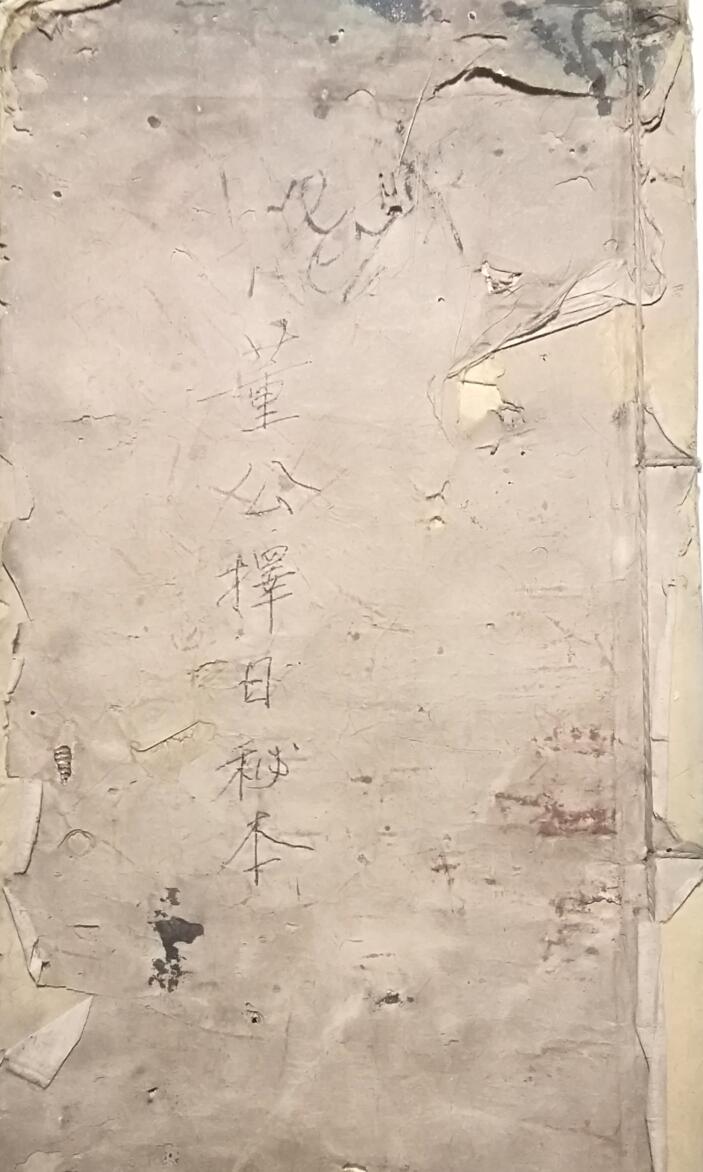 董公擇日秘本